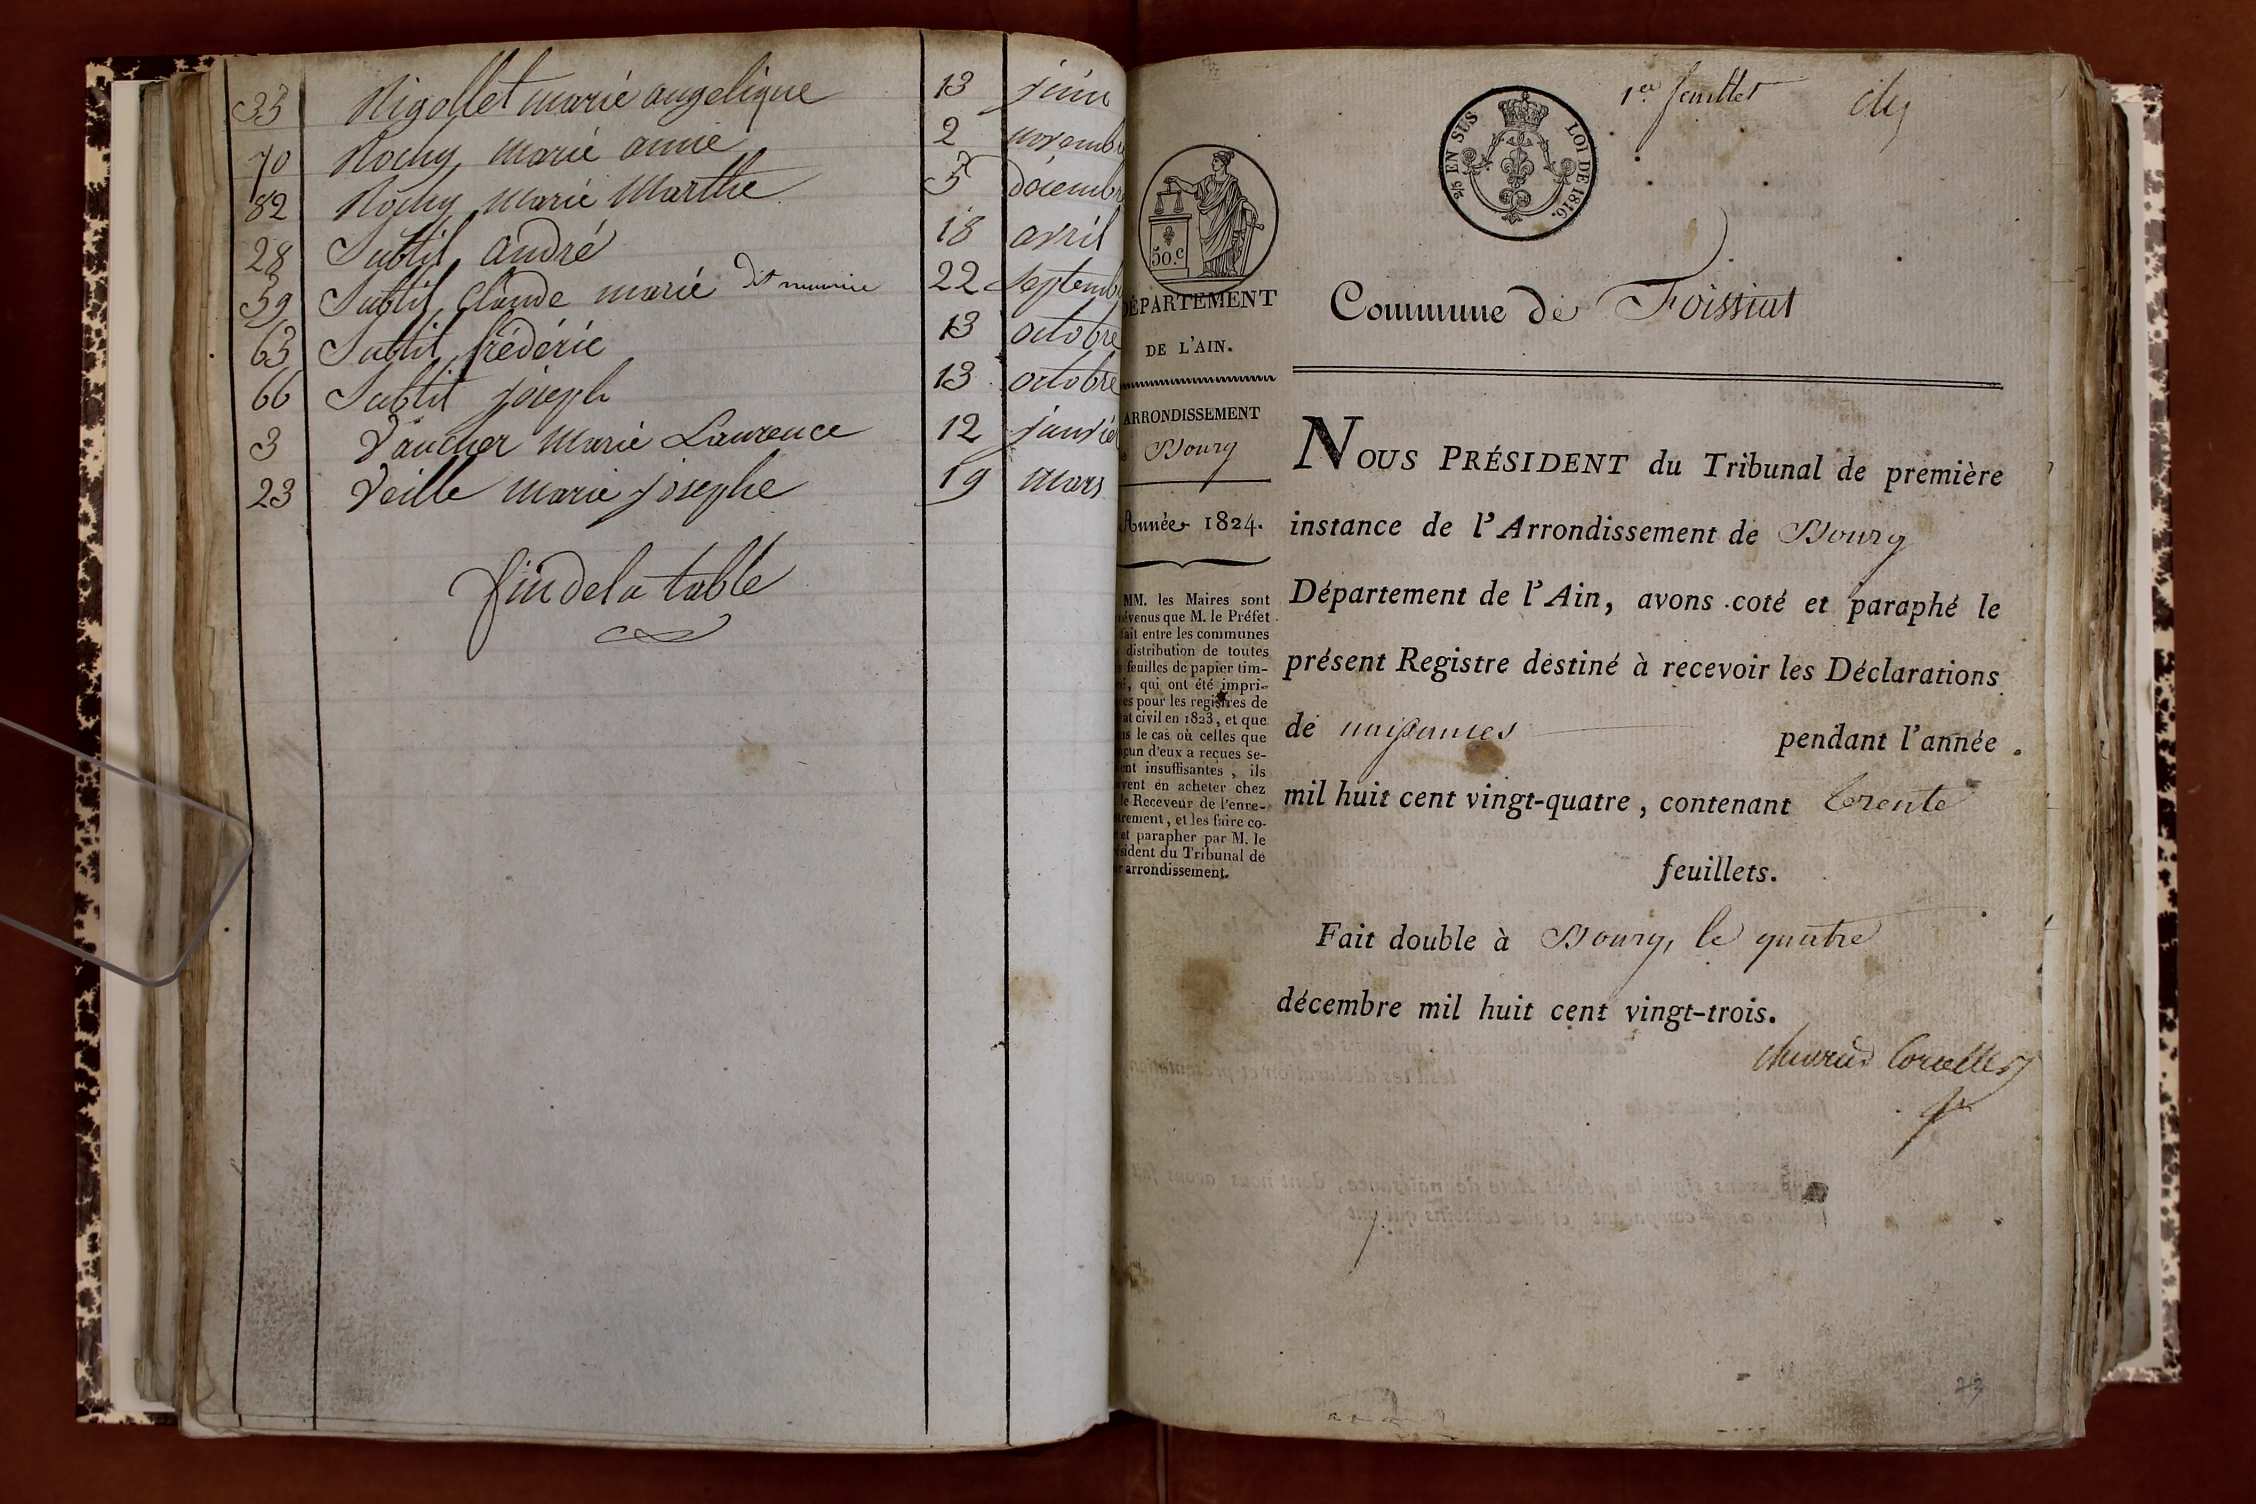 33 Rigollet marie angelique 13 juin
70 Rochy, marie anne 2 novembre
82 Rochy marie Marthe 5 décembre
28 Subtil, andré 18 avril
59 Subtil, Claude marie dit 22 septemb
63 Subtil, frédéric 13 octobre
66 Subtil joseph 13 octobre
3 Vaucher Marie Laurence 12 janvier
23 Veille marie josephe 19 mars
fin de la table
1er feuillet
2/5 EN SUS LOI DE 1816.
50.c
DÉPARTEMENT
DE L'AIN.
ARRONDISSEMENT
Bourg
Année 1824.
MM. les Maires sont
évenus que M. le Préfet
fait entre les communes
distribution de toutes
feuilles de papier tim-
, qui ont été impri-
es pour les registres de
at civil en 1823, et que
s le cas où celles que
cun d'eux a reçues se-
ent insuffisantes, ils
vent en acheter chez
le Receveur de l'enre-
trement, et les faire co-
et parapher par M. le
sident du Tribunal de
r arrondissement.
Commune de Foissiat
NOUS PRÉSIDENT du Tribunal de première
instance de l'Arrondissement de Bourg
Département de l'Ain, avons coté et paraphé le
présent Registre destiné à recevoir les Déclarations
de naissances pendant l'année
mil huit cent vingt-quatre, contenant trente
feuillets.
Fait double à Bourg, le quatre
décembre mil huit cent vingt-trois.
23